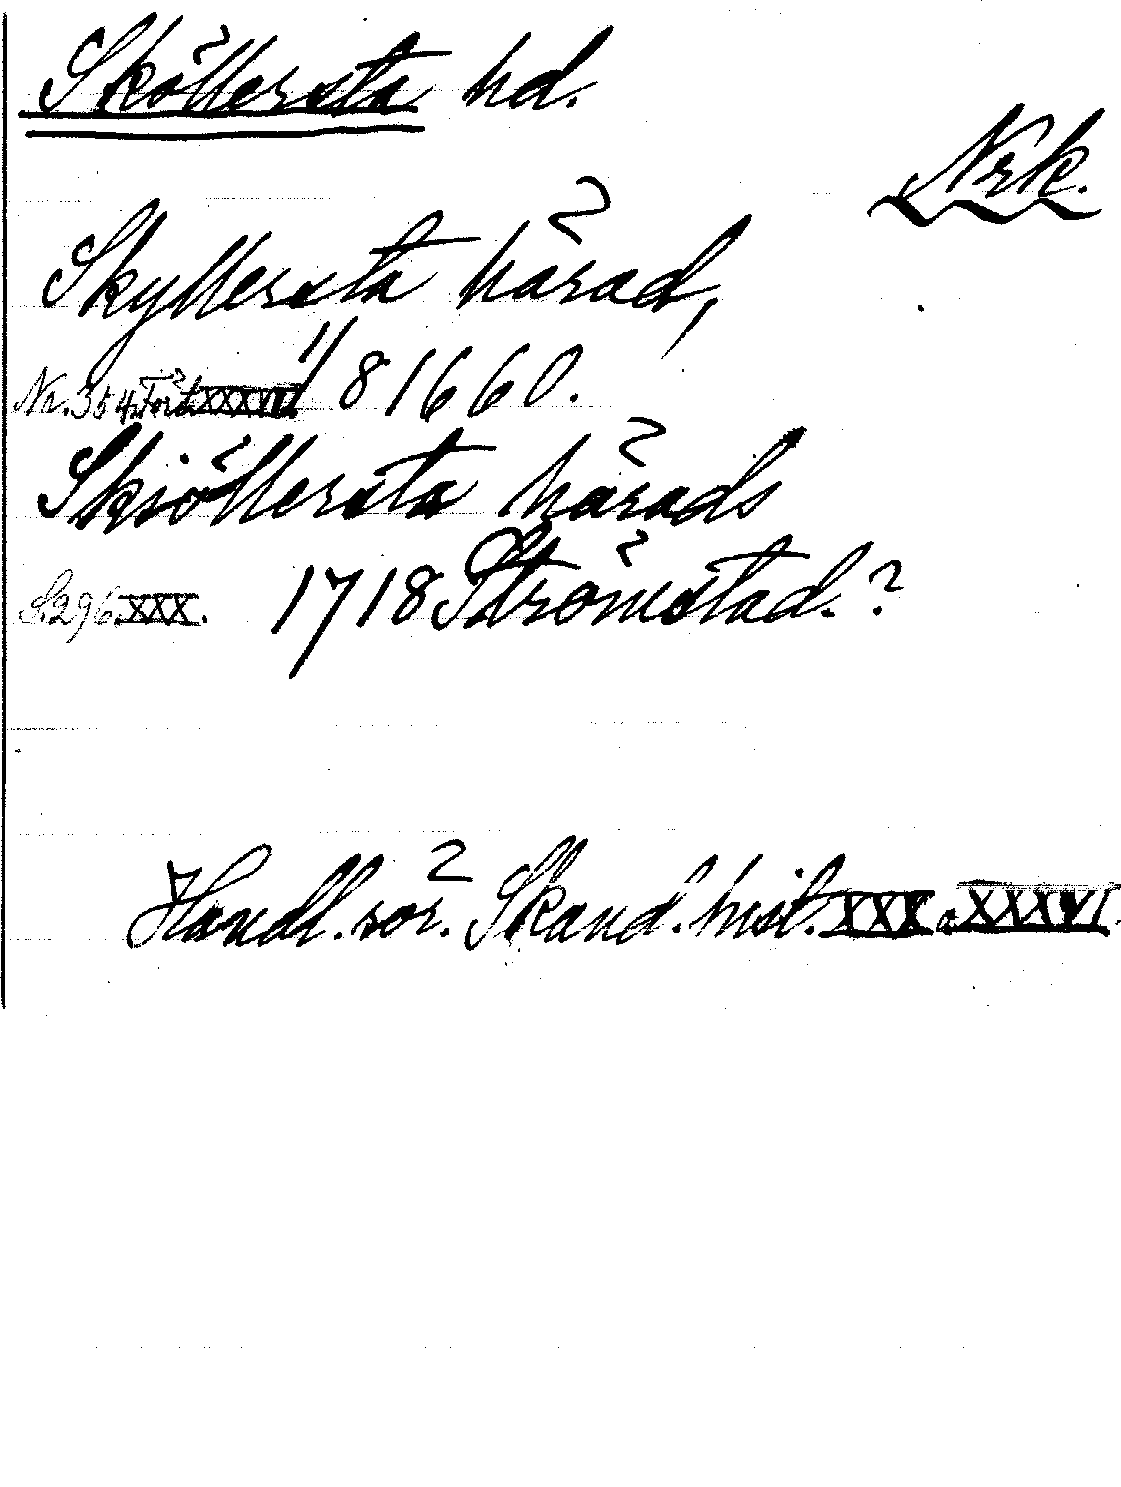 Sköllersta hd.
Nrk.
Skyllersta härad,
Nr. 354. Fört. XXXVI 11/8 1660.
Skiöllersta härads
S. 296. XXX. 1718 Strömstad.?
Handl. rör. Skand. hist. XXX o. XXXVI.